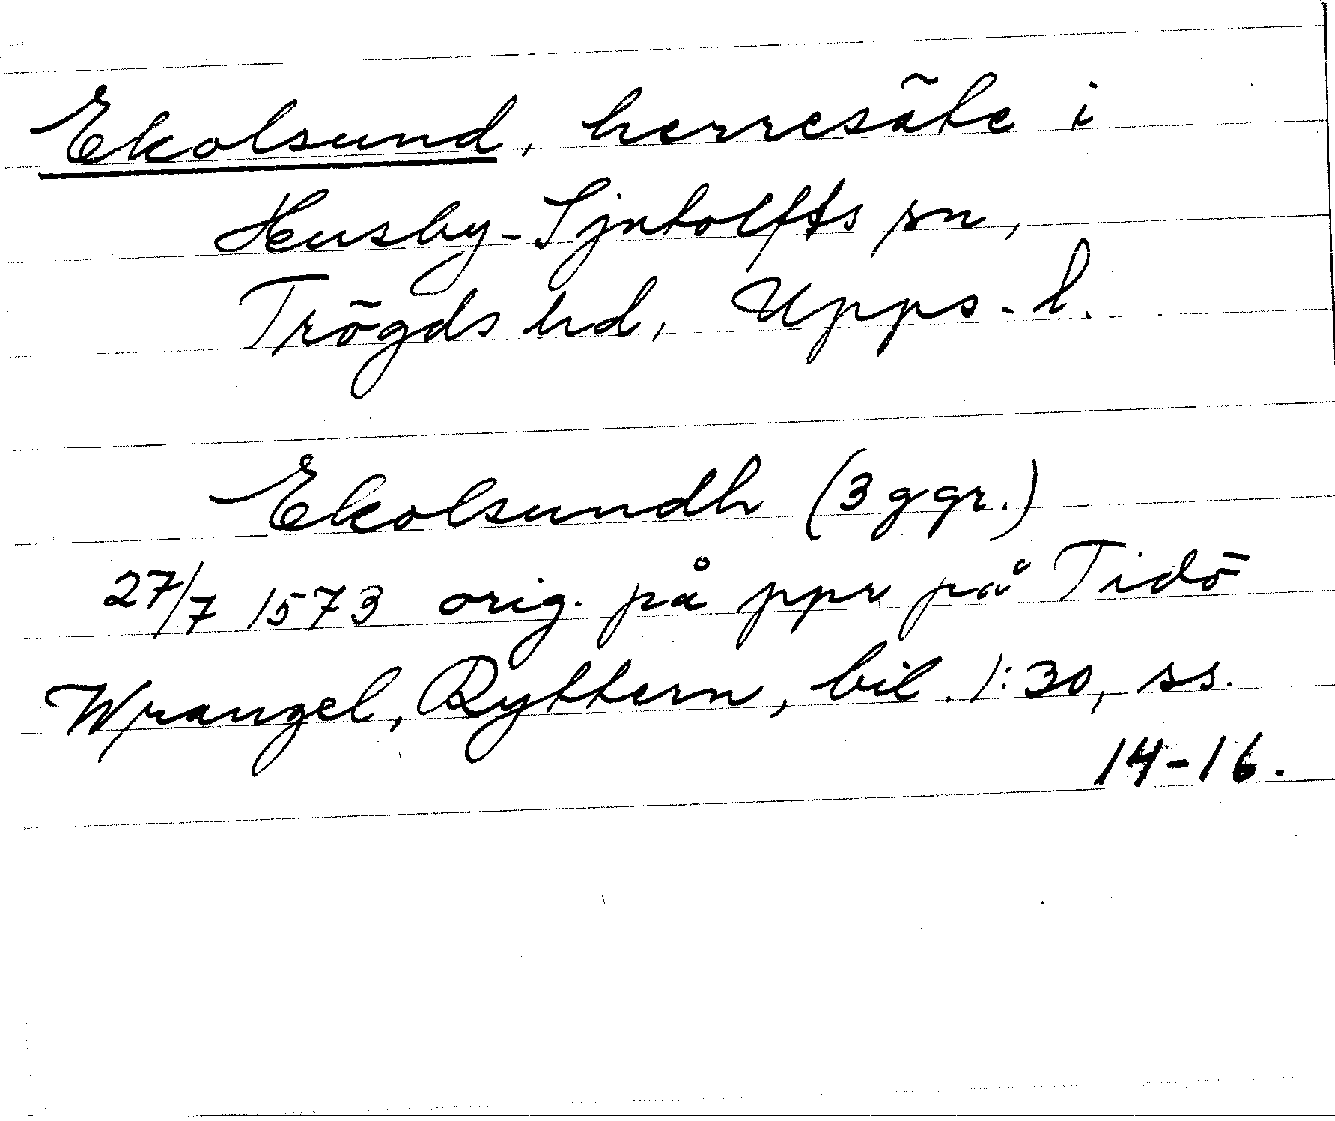 Ekolsund, herresäte i
Husby-Sjutolfts sn,
Trögds hd, Upps. l.
Ekolsundh (3 ggr.)
27/7 1573 orig. på ppr på Tidö
Wrangel, Ryttern, bil. 1:30, ss.
14-16.